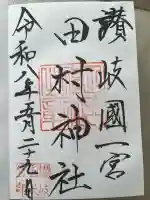 讃岐國一宮
田村神社
令和八年五月二十九日